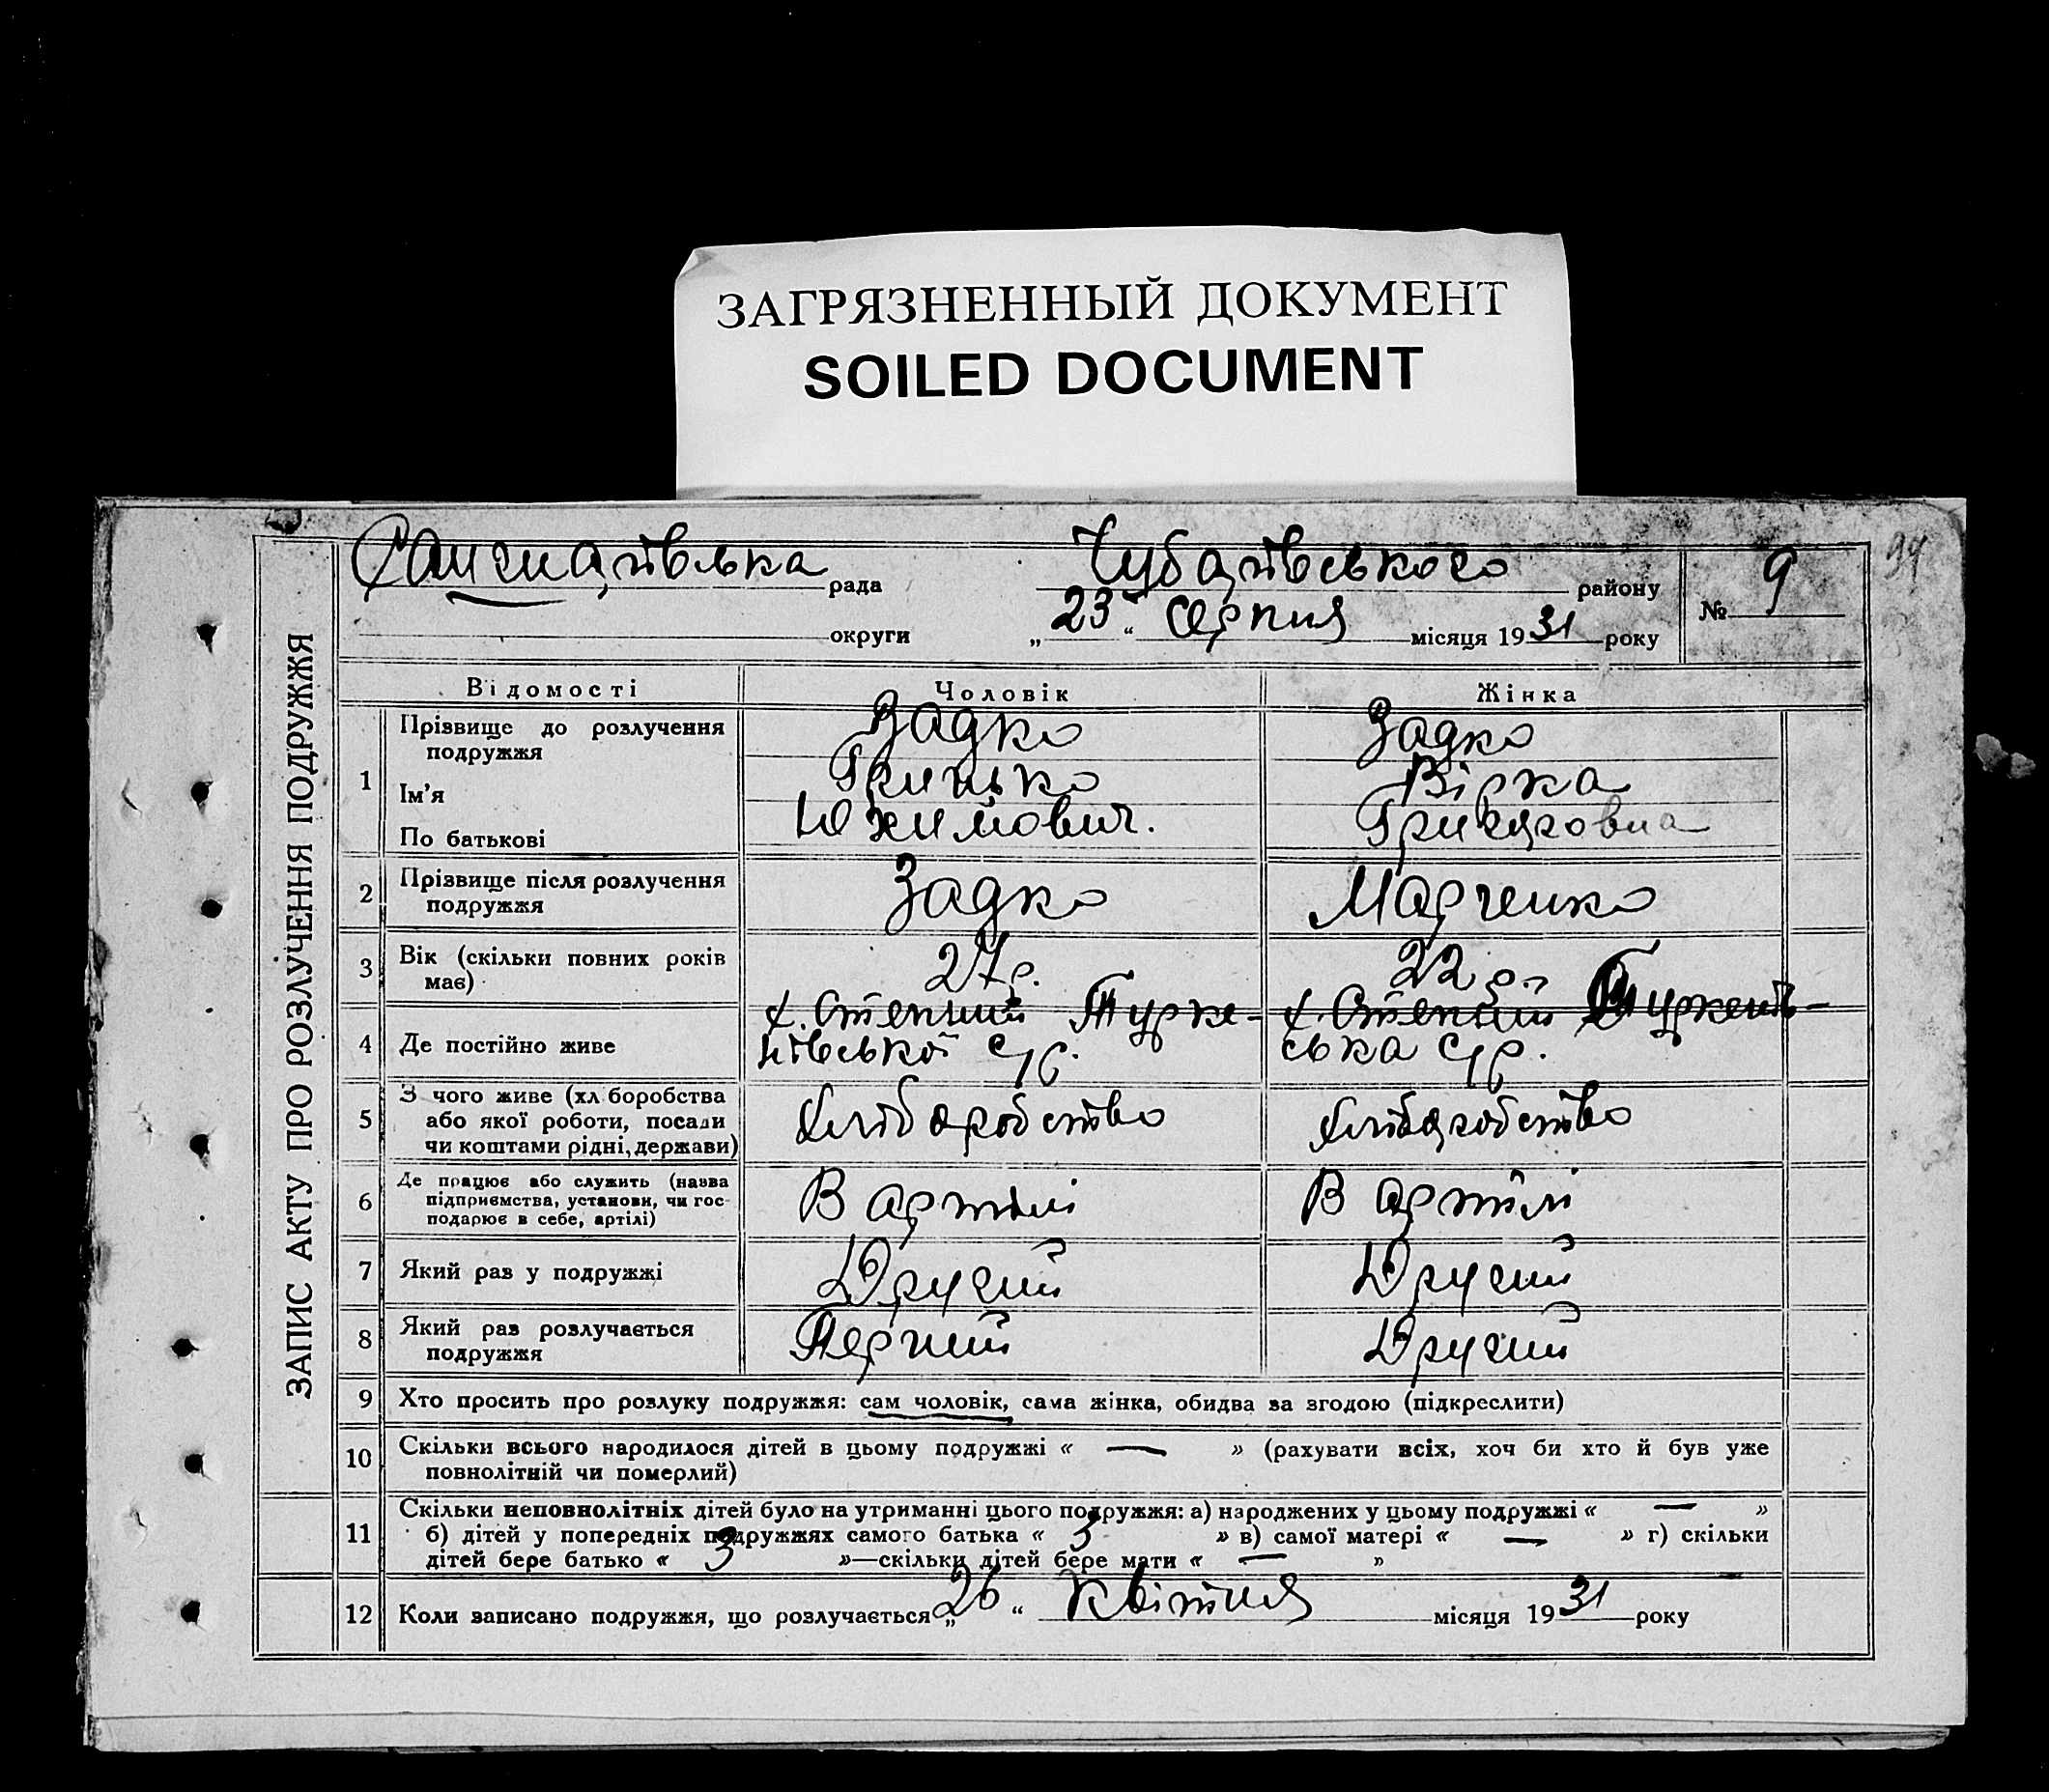 ЗАГРЯЗНЕННЫЙ ДОКУМЕНТ
SOILED DOCUMENT
94
рада Чубарівського району № 9
округи „23“ серпня місяця 1931 року
ЗАПИС АКТУ ПРО РОЗЛУЧЕННЯ ПОДРУЖЖЯ
Відомості Чоловік Жінка
1 Прізвище до розлучення подружжя Задко Задко
Ім’я Гринько Вірка
По батькові Юхимович. Григоровна
2 Прізвище після розлучення подружжя Задко Марченко
3 Вік (скільки повних років має) 27р. 22 р.
4 Де постійно живе х. Степний Турке- х. Степний Туркенів-
нівської с/р. ська с/р.
5 З чого живе (хл боробства
або якої роботи, посади
чи коштами рідні, держави) Хліборобство Хліборобство
6 Де працює або служить (назва
підприємства, установи, чи гос-
подарює в себе, артілі) В артілі В артілі
7 Який раз у подружжі Другий Другий
8 Який раз розлучається
подружжя Перший Другий
9 Хто просить про розлуку подружжя: сам чоловік, сама жінка, обидва за згодою (підкреслити)
10 Скільки всього народилося дітей в цьому подружжі « — » (рахувати всіх, хоч би хто й був уже
повнолітній чи померлий)
11 Скільки неповнолітніх дітей було на утриманні цього подружжя: а) народжених у цьому подружжі « — »
б) дітей у попередніх подружжях самого батька « 3 » в) самої матері « — » г) скільки
дітей бере батько « 3 »—скільки дітей бере мати « — »
12 Коли записано подружжя, що розлучається „26“ квітня місяця 1931 року